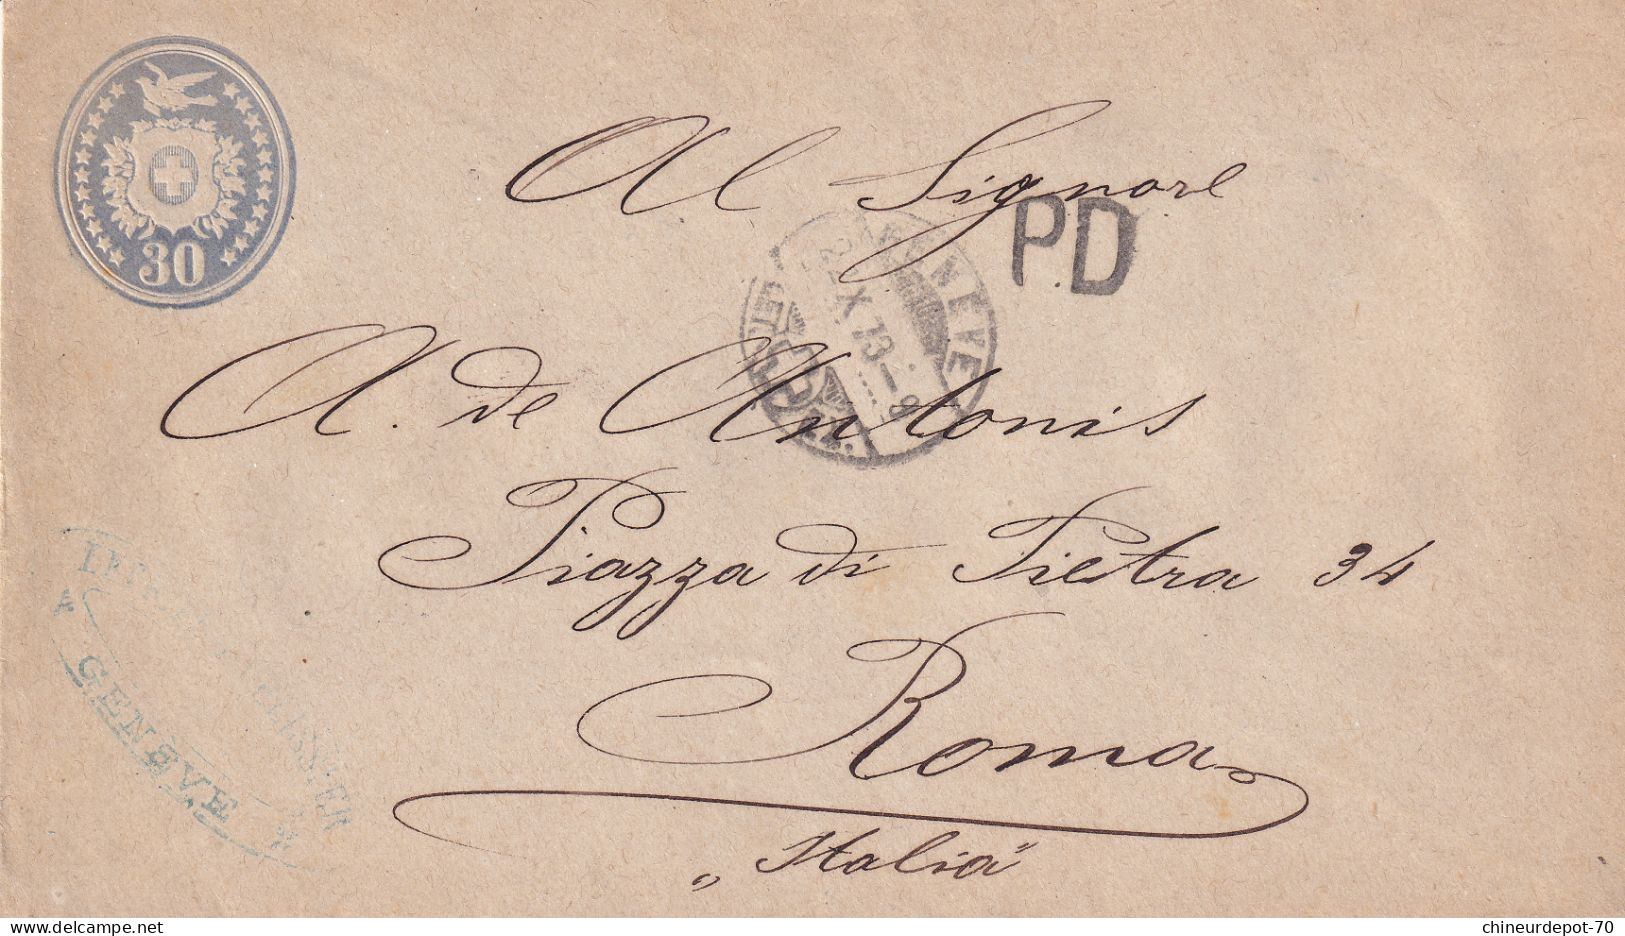 30
Al Signore
P.D
GENÈVE
22 X 73 - 9
A. de Antonis
Piazza di Pietra 34
Roma
„Italia"
GENÈVE
delcampe.net
chineurdepot-70